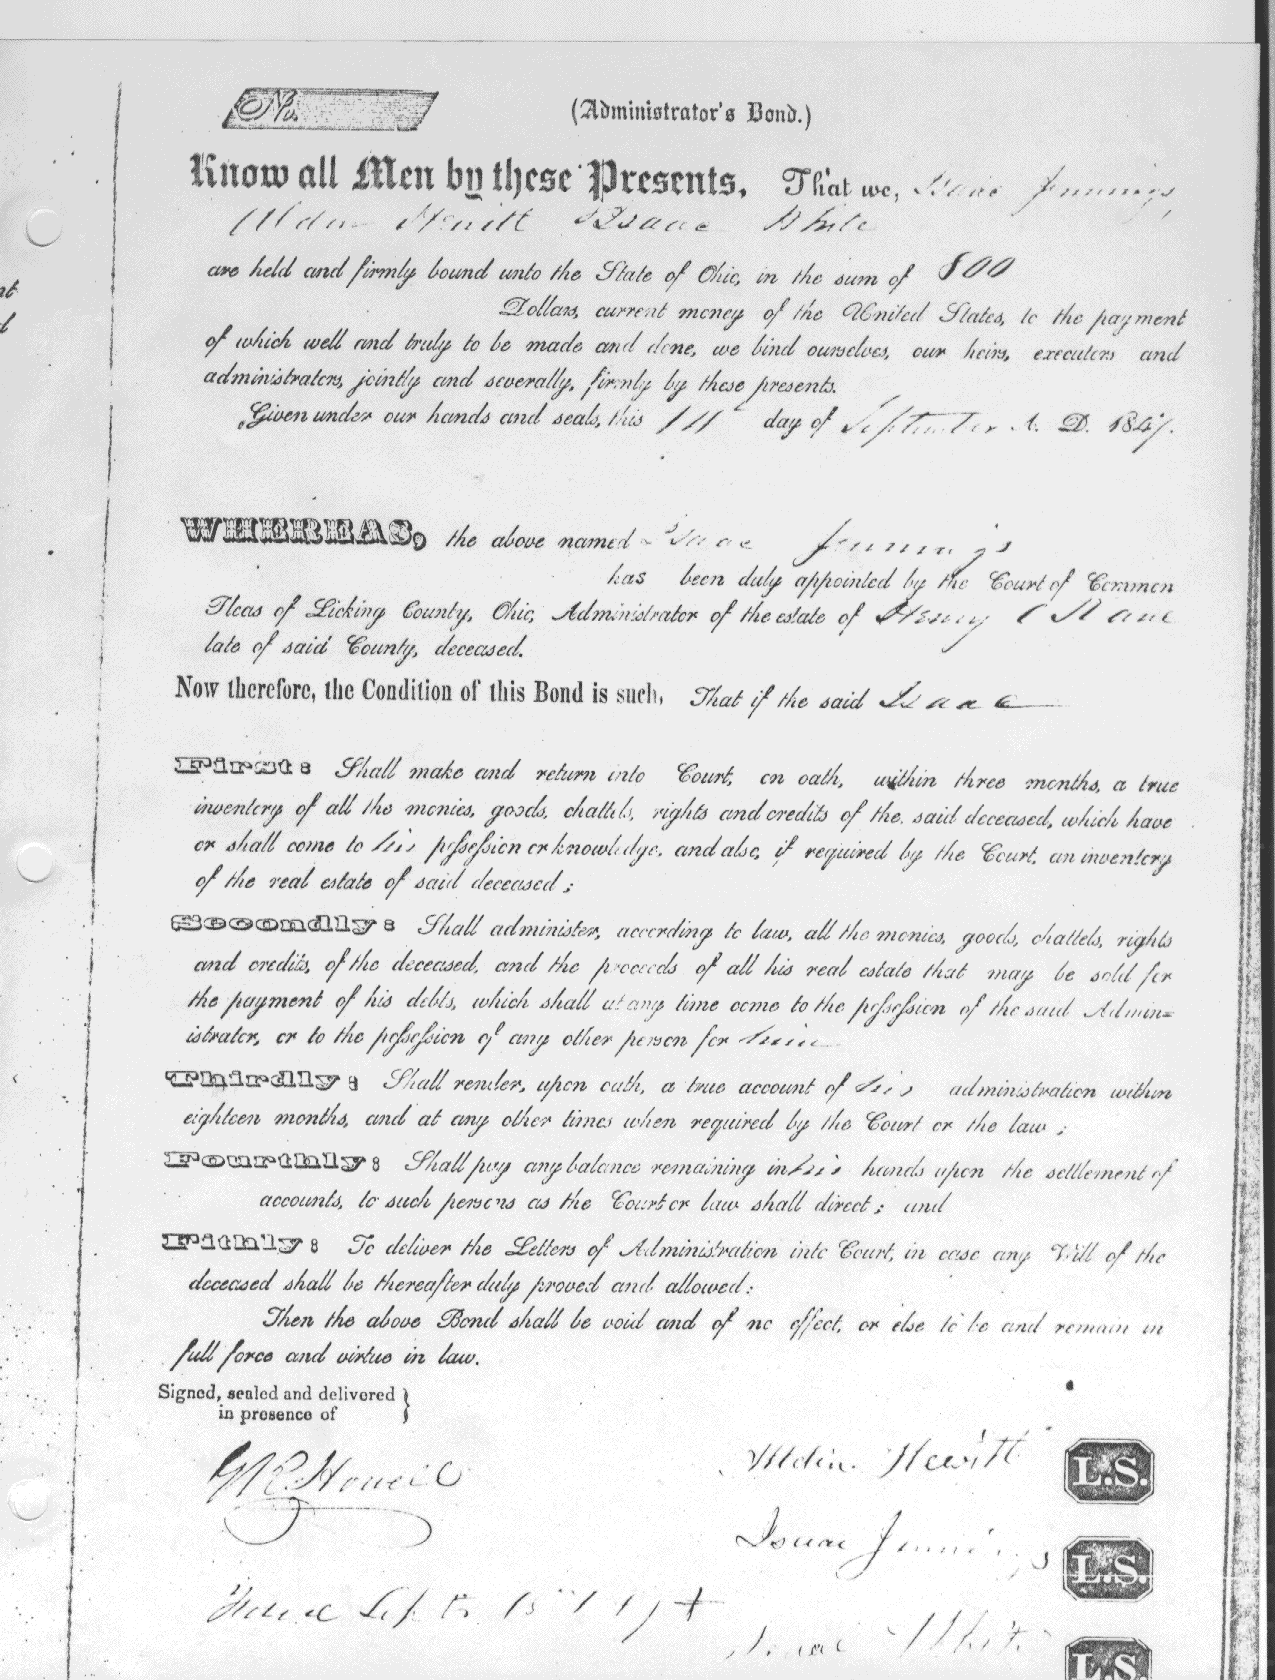 nt
d
No.
(Administrator's Bond.)
Know all Men by these Presents, That we, Isaac Jennings,
Alden Hewitt & Isaac White
are held and firmly bound unto the State of Ohio, in the sum of 800
Dollars, current money of the United States, to the payment
of which well and truly to be made and done, we bind ourselves, our heirs, executors and
administrators, jointly and severally, firmly by these presents.
Given under our hands and seals, this day of September A. D. 1847.
WHEREAS, the above named Isaac Jennings
has been duly appointed by the Court of Common
Pleas of Licking County, Ohio, Administrator of the estate of Henry
late of said County, deceased.
Now therefore, the Condition of this Bond is such, That if the said Isaac
First: Shall make and return into Court, on oath, within three months, a true
inventory of all the monies, goods, chattels, rights and credits of the said deceased, which have
or shall come to his possession or knowledge, and also, if required by the Court, an inventory
of the real estate of said deceased;
Secondly: Shall administer, according to law, all the monies, goods, chattels, rights
and credits, of the deceased, and the proceeds of all his real estate that may be sold for
the payment of his debts, which shall at any time come to the possession of the said Admin=
istrator, or to the possession of any other person for him
Thirdly: Shall render, upon oath, a true account of his administration within
eighteen months, and at any other times when required by the Court or the law;
Fourthly: Shall pay any balance remaining in his hands upon the settlement of
accounts, to such persons as the Court or law shall direct; and
Fithly: To deliver the Letters of Administration into Court, in case any Will of the
deceased shall be thereafter duly proved and allowed:
Then the above Bond shall be void and of no effect, or else to be and remain in
full force and virtue in law.
Signed, sealed and delivered
in presence of
Alden Hewitt L.S.
Isaac Jennings L.S.
Sept
Isaac White L.S.